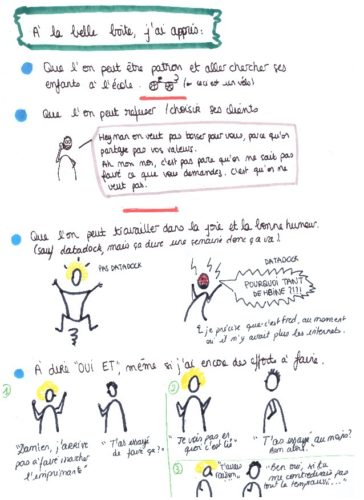 A la belle boite, j'ai appris:
Que l'on peut être patron et aller chercher ses
enfants à l'école. (← ceci est un vélo)
Que l'on peut refuser / choisir ses clients
Hey man on veut pas bosser pour vous, parce qu'on
partage pas vos valeurs.
Ah non non, c'est pas parce qu'on ne sait pas
faire ce que vous demandez. C'est qu'on ne
veut pas.
Que l'on peut travailler dans la joie et la bonne humeur.
(sauf datadock, mais ça dure une semaine donc ça va!)
PAS DATADOCK
DATADOCK
POURQUOI TANT
DE HAINE ?!!!
je précise que c'est Fred, au moment
où il n'y avait plus les internets.
A dire "OUI ET", même si j'ai encore des efforts à faire.
1
"Damien, j'arrive
pas à faire marcher
l'imprimante"
"T'as essayé
de faire ça?"
2
"Je vois pas
où c'est là"
"T'as essayé au moins?
Non alors."
3
"Ben oui, si tu
me contredisais pas
tout le temps aussi..."